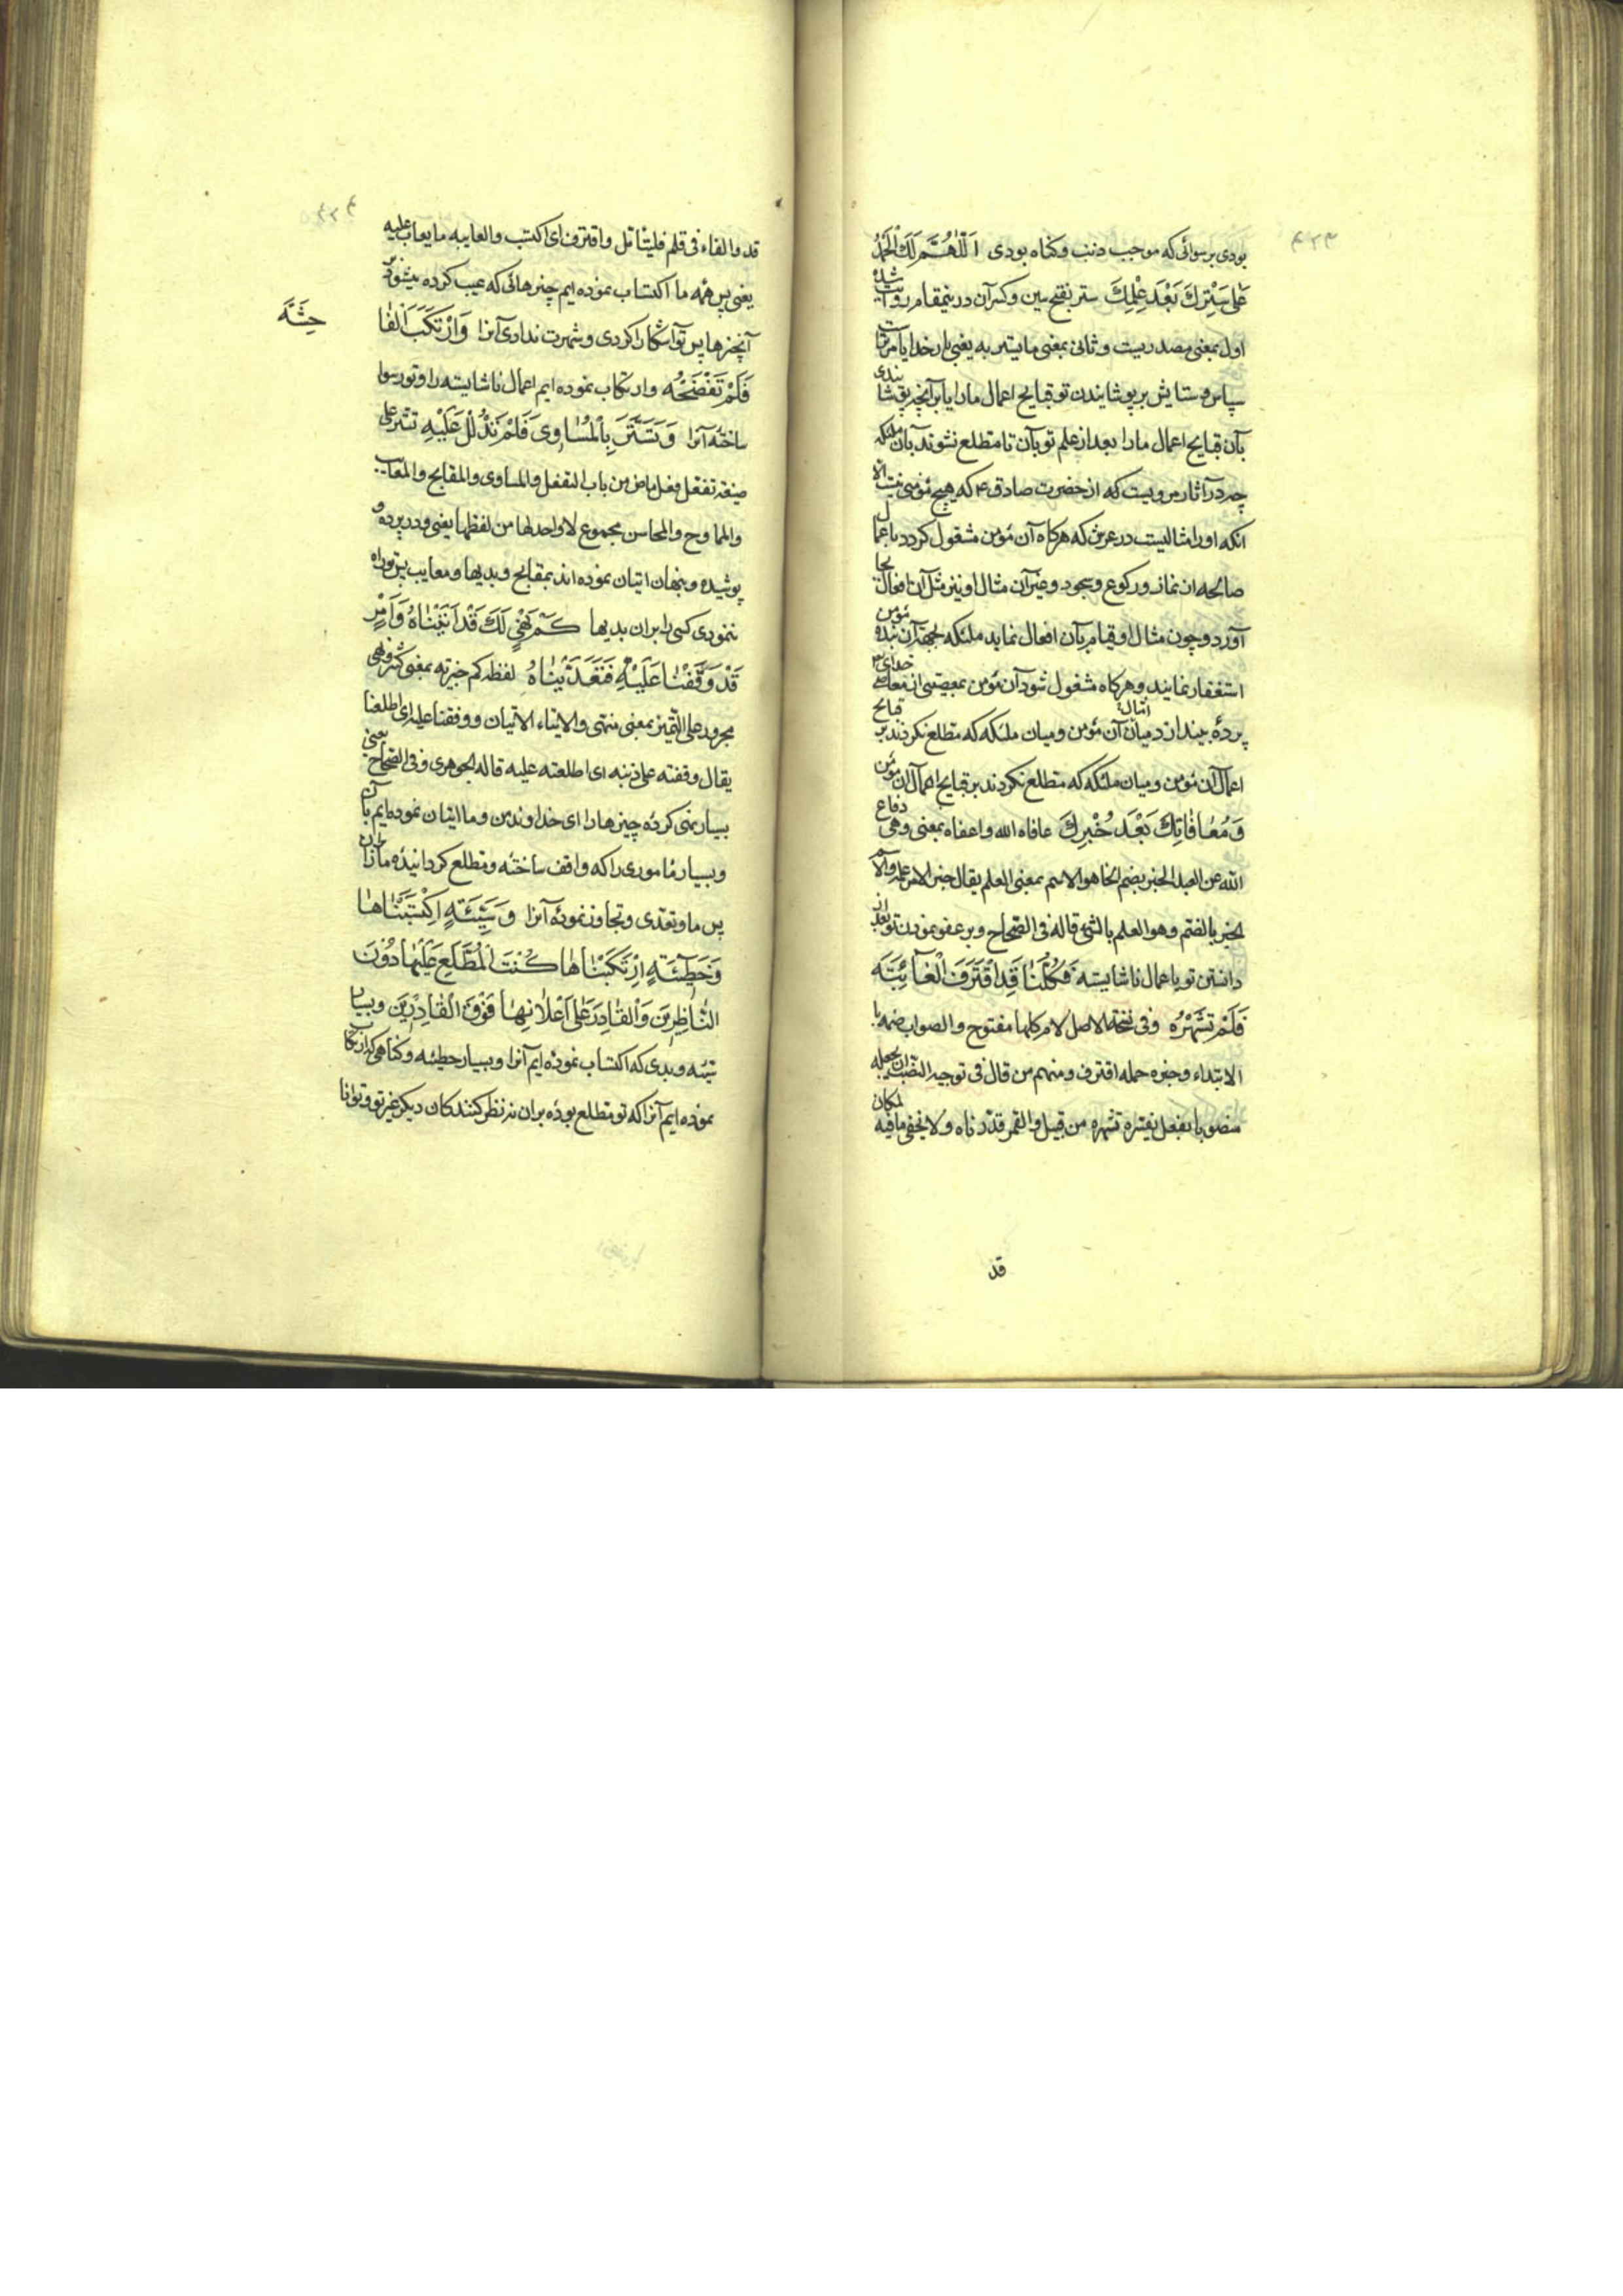 ۴۲۳
بودی برسوائی که موجب ذنب وکناه بودی اَللّٰهُمَّ لَكَ الْحَمْدُ
عَلٰی سَتْرِكَ بَعْدَ عِلْمِكَ ستر بفتح سین وکسر آن درینمقام روایت شده
اول بمعنی مصدریست وثانی بمعنی مایستر به یعنی بار خدایا مر تراست
سپاس وستایش بر پوشانیدن تو قبایح اعمال مارا یا بر آنچه پوشانیدی
بآن قبایح اعمال مارا بعد از علم تو بآن تا مطلع نشوند بآن ملئکه
چه در آثار مرویست که از حضرت صادق ع که هیچ مؤمنی نیست الا
انکه اورا مثالیست در عرش که هرکاه آن مؤمن مشغول کردد باعمال
صالحه از نماز ورکوع وسجود وغیر آن مثال او نیز مثل آن افعال بجا
آورد وچون مثال او قیام بآن افعال نماید ملئکه بجهة آن بنده مؤمن
استغفار نمایند وهرکاه مشغول شود آن مؤمن بمعصیتی از معاصی خدای تع
پردهٔ بیندازد میان آن مؤمن ومیان ملئکه که مطلع نکردند بر قبایح
اعمال آن مؤمن ومیان ملئکه که مطلع نکردند بر قبایح اعمال آن مؤمن
وَمُعٰافٰاتِكَ بَعْدَ خُبْرِكَ عافاه الله واعفاه بمعنی وهی دفاع
الله عن العبد الخبر بضم الخا هو الاسم بمعنی العلم یقال خبر الامر علمه والاسم
الخبر بالضم وهو العلم بالشئ قاله فی الصحاح وبر عفو نمودن تو بعد از
دانستن تو باعمال ناشایسته فَكُلُّنٰا قَدِ اقْتَرَفَ الْعٰائِبَةَ
فَلَمْ تَشْهَرْهُ وفی نسخة الاصل لام كلها مفتوح والصواب ضمه با
الابتداء وخبره جمله اقترف ومنهم من قال فی توجیه النصب ان یجعله
منصوبا بفعل یفسره تشهره من قبیل والقمر قدّرناه ولا یخفی ما فیه لمكان
قد
۴۲۴
قد والفاء فی فلم فلیتأمل واقترف ای اکتسب والعایبه ما یعاب علیه
یعنی پس همه ما اکتساب نموده ایم چیزهائی که عیب کرده میشود بر
آنچیزها پس تو آشکارا کردی وشهرت ندادی آنرا وَارْتَكَبَ الْفٰا
حِشَةَ
فَلَمْ تَفْضَحْهُ وارتکاب نموده ایم اعمال ناشایسته را وتو رسوا
ساخته آنرا وَتَسَتَّرَ بِالْمَسٰاوِی فَلَمْ تَدْلُلْ عَلَیْهِ تستر علی
صیغة تفعل فعل ماض من باب التفعل والمساوی والمقابح والمعایب
والممادح والمحاسن مجموع لا واحد لها من لفظها یعنی ودر پرده
پوشیده وپنهان اتیان نموده اند بمقابح وبدیها ومعایب پس تو راه
ننمودی کسی را بران بدیها كَمْ نَهْیٍ لَكَ قَدْ اَتَیْنٰاهُ وَاَمْرٍ
قَدْ وَقَفْتَنٰا عَلَیْهِ فَتَعَدَّیْنٰاهُ لفظه کم خبریه بمعنی کثیر ونهی
مجرور علی التمیز بمعنی منتهی والایتاء الاتیان ووقفتنا علیه ای اطلعتنا
یقال وقفته علی ذنبه ای اطلعته علیه قاله الجوهری وفی الصحاح یعنی
بسیار نهی کردهٔ چیزها را ای خداوند من وما اتیان نموده ایم بآن
وبسیار ماموری را که واقف ساخته ومطلع کردانیده مارا بر آن
پس ما وتعدی وتجاوز نموده آنرا وَسَیِّئَةٍ اِكْتَسَبْنٰاهٰا
وَخَطٖیئَةٍ اِرْتَكَبْنٰاهٰا كُنْتَ الْمُطَّلِعَ عَلَیْهٰا دُوْنَ
النّٰاظِرِیْنَ وَالْقٰادِرَ عَلٰی اَعْلٰانِهٰا فَوْقَ الْقٰادِرٖیْنَ وبسیار
سیئه وبدی که اکتساب نموده ایم آنرا وبسیار خطیئه وکناهی که ارتکاب
نموده ایم آنرا که تو مطلع بودهٔ بران نه نظر کنندکان دیکر غیر تو وتوانا